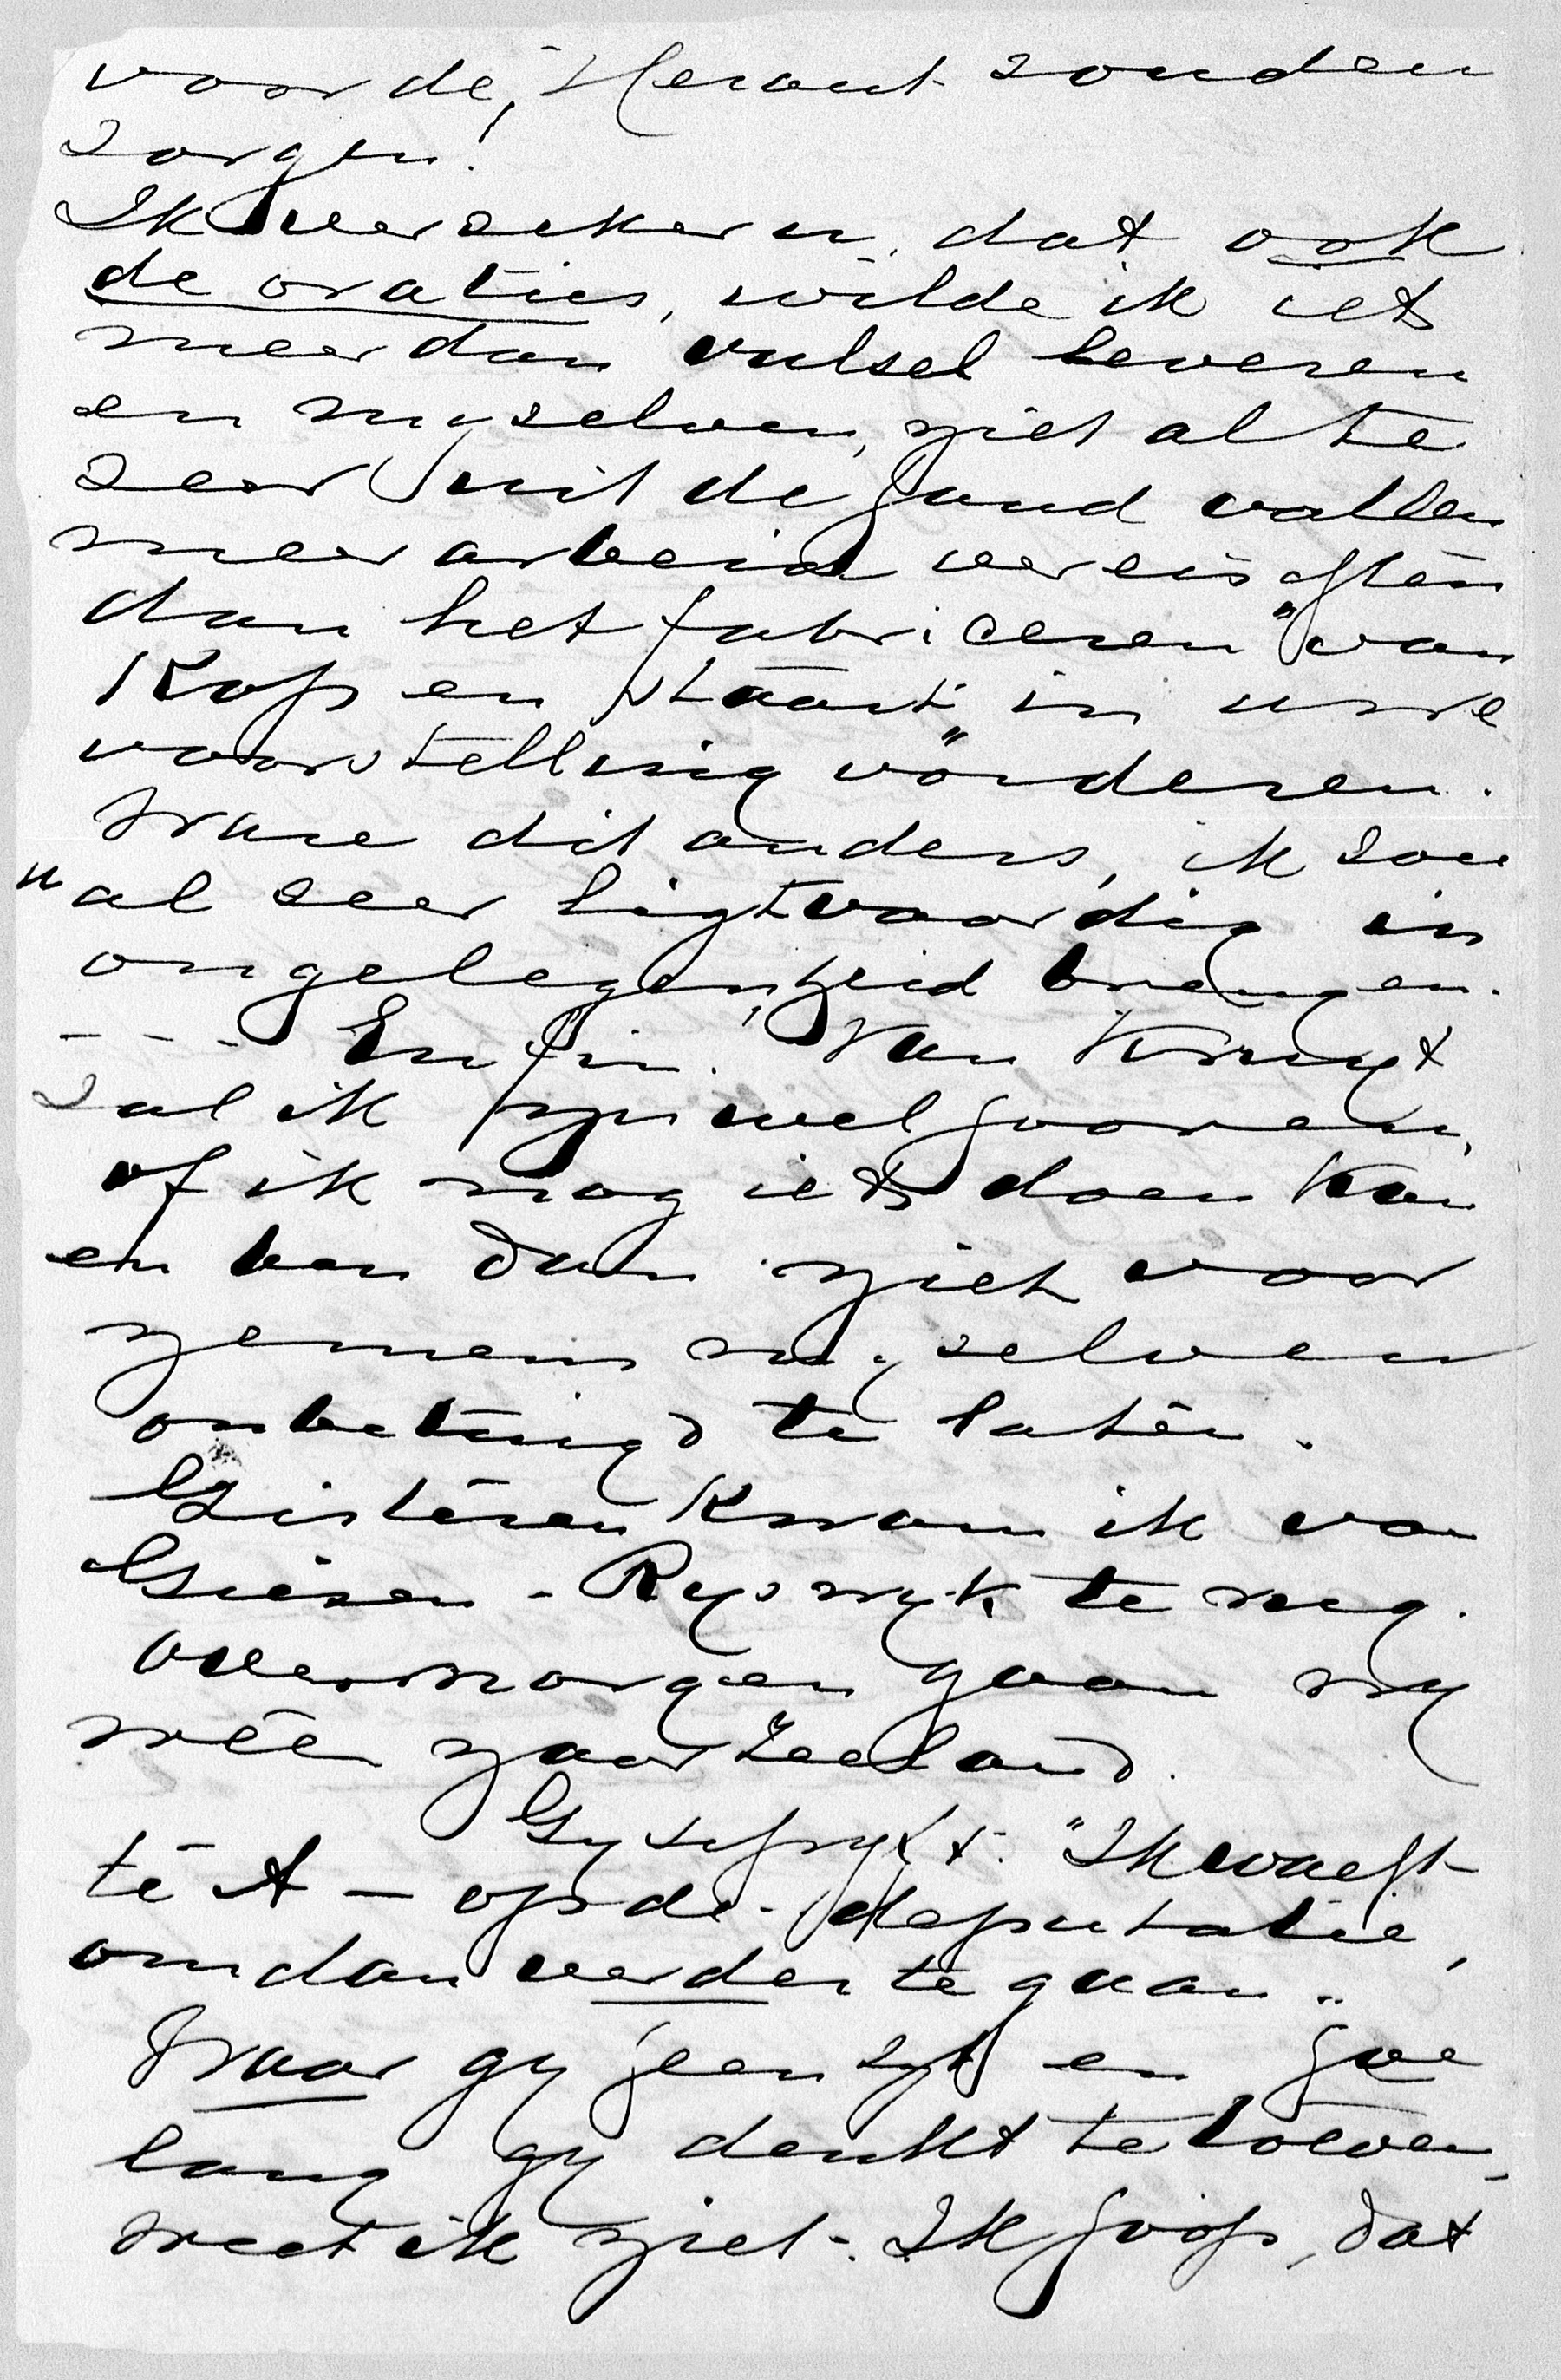 voor de Heraut zouden
zorgen!
Ik verzeker u, dat ook
de oraties, wilde ik iets
meer dan vulsel leveren
en myzelven, niet al te
zeer uit de hand vallen
meer arbeid vereischten
dan het fabriceren "van
Kop en Staart" in uwe
voorstelling vorderen.
Ware dit anders, ik zou
u al zeer ligtvaardig in
ongelegenheid brengen.
- - - Enfin! Van Kruyt
zal ik nu wel hooren,
of ik nog iets doen kan
en ben dan niet voor
nemens myzelven
onbetuigd te laten.
Gisteren kwam ik van
Giesen-Ryswyk terug.
overmorgen gaan wy
wéér naar Zeeland.
Gy schryft: "Ik wacht
te A - op de - deputatie,
om dan verder te gaan."
Waar gy heen zyt en hoe
lang gy denkt te toeven,
weet ik niet. Ik hoop, dat